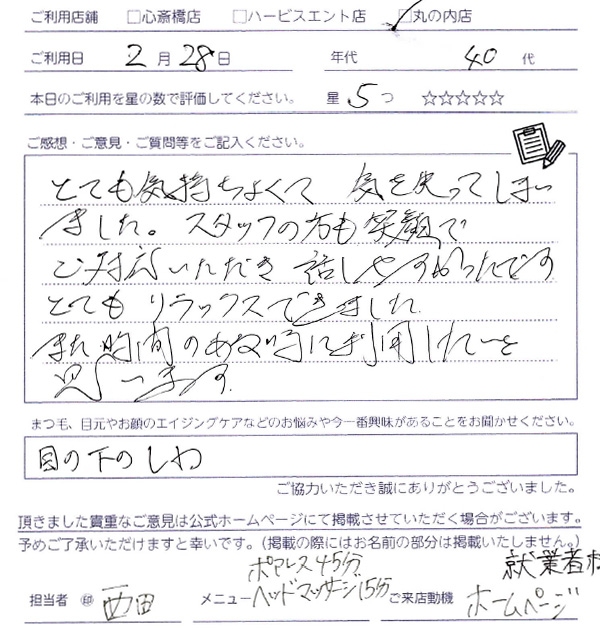 ご利用店舗 □心斎橋店 □ハービスエント店 ☑丸の内店
ご利用日 2月28日 年代 40代
本日のご利用を星の数で評価してください。 星 5つ ☆☆☆☆☆
ご感想・ご意見・ご質問等をご記入ください。
とても気持ちよくて 気を失ってしまい
ました。スタッフの方も笑顔で
ご対応いただき 話しやすかったです
とてもリラックスできました
また時間のある時に利用したいと
思います。
まつ毛、目元やお顔のエイジングケアなどのお悩みや今一番興味があることをお聞かせください。
目の下のしわ
ご協力いただき誠にありがとうございました。
頂きました貴重なご意見は公式ホームページにて掲載させていただく場合がございます。
予めご了承いただけますと幸いです。(掲載の際にはお名前の部分は掲載いたしません。)
ポアレス45分 就業者
担当者 ㊞ 西田 メニュー ヘッドマッサージ15分 ご来店動機 ホームページ